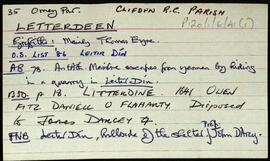 35 Omey Par. CLIFDEN R.C. PARISH
P120/1/6/A1(1)
LETTERDEEN
Griffiths: Mainly Thomas Eyre.
O.S. LIST 86 LEITIR DÍN
AB 73. Antóin Máirtín escapes from yeoman by hiding
in a quarry in Leitir Dín.
BSD p. 18. LITTERDINE. 1641 OWEN
FITZ DANIELL O FLAHARTY. Disposed
to James Darcey
FNB Leitir Dín, hillside of the shelter John D'Arcy.